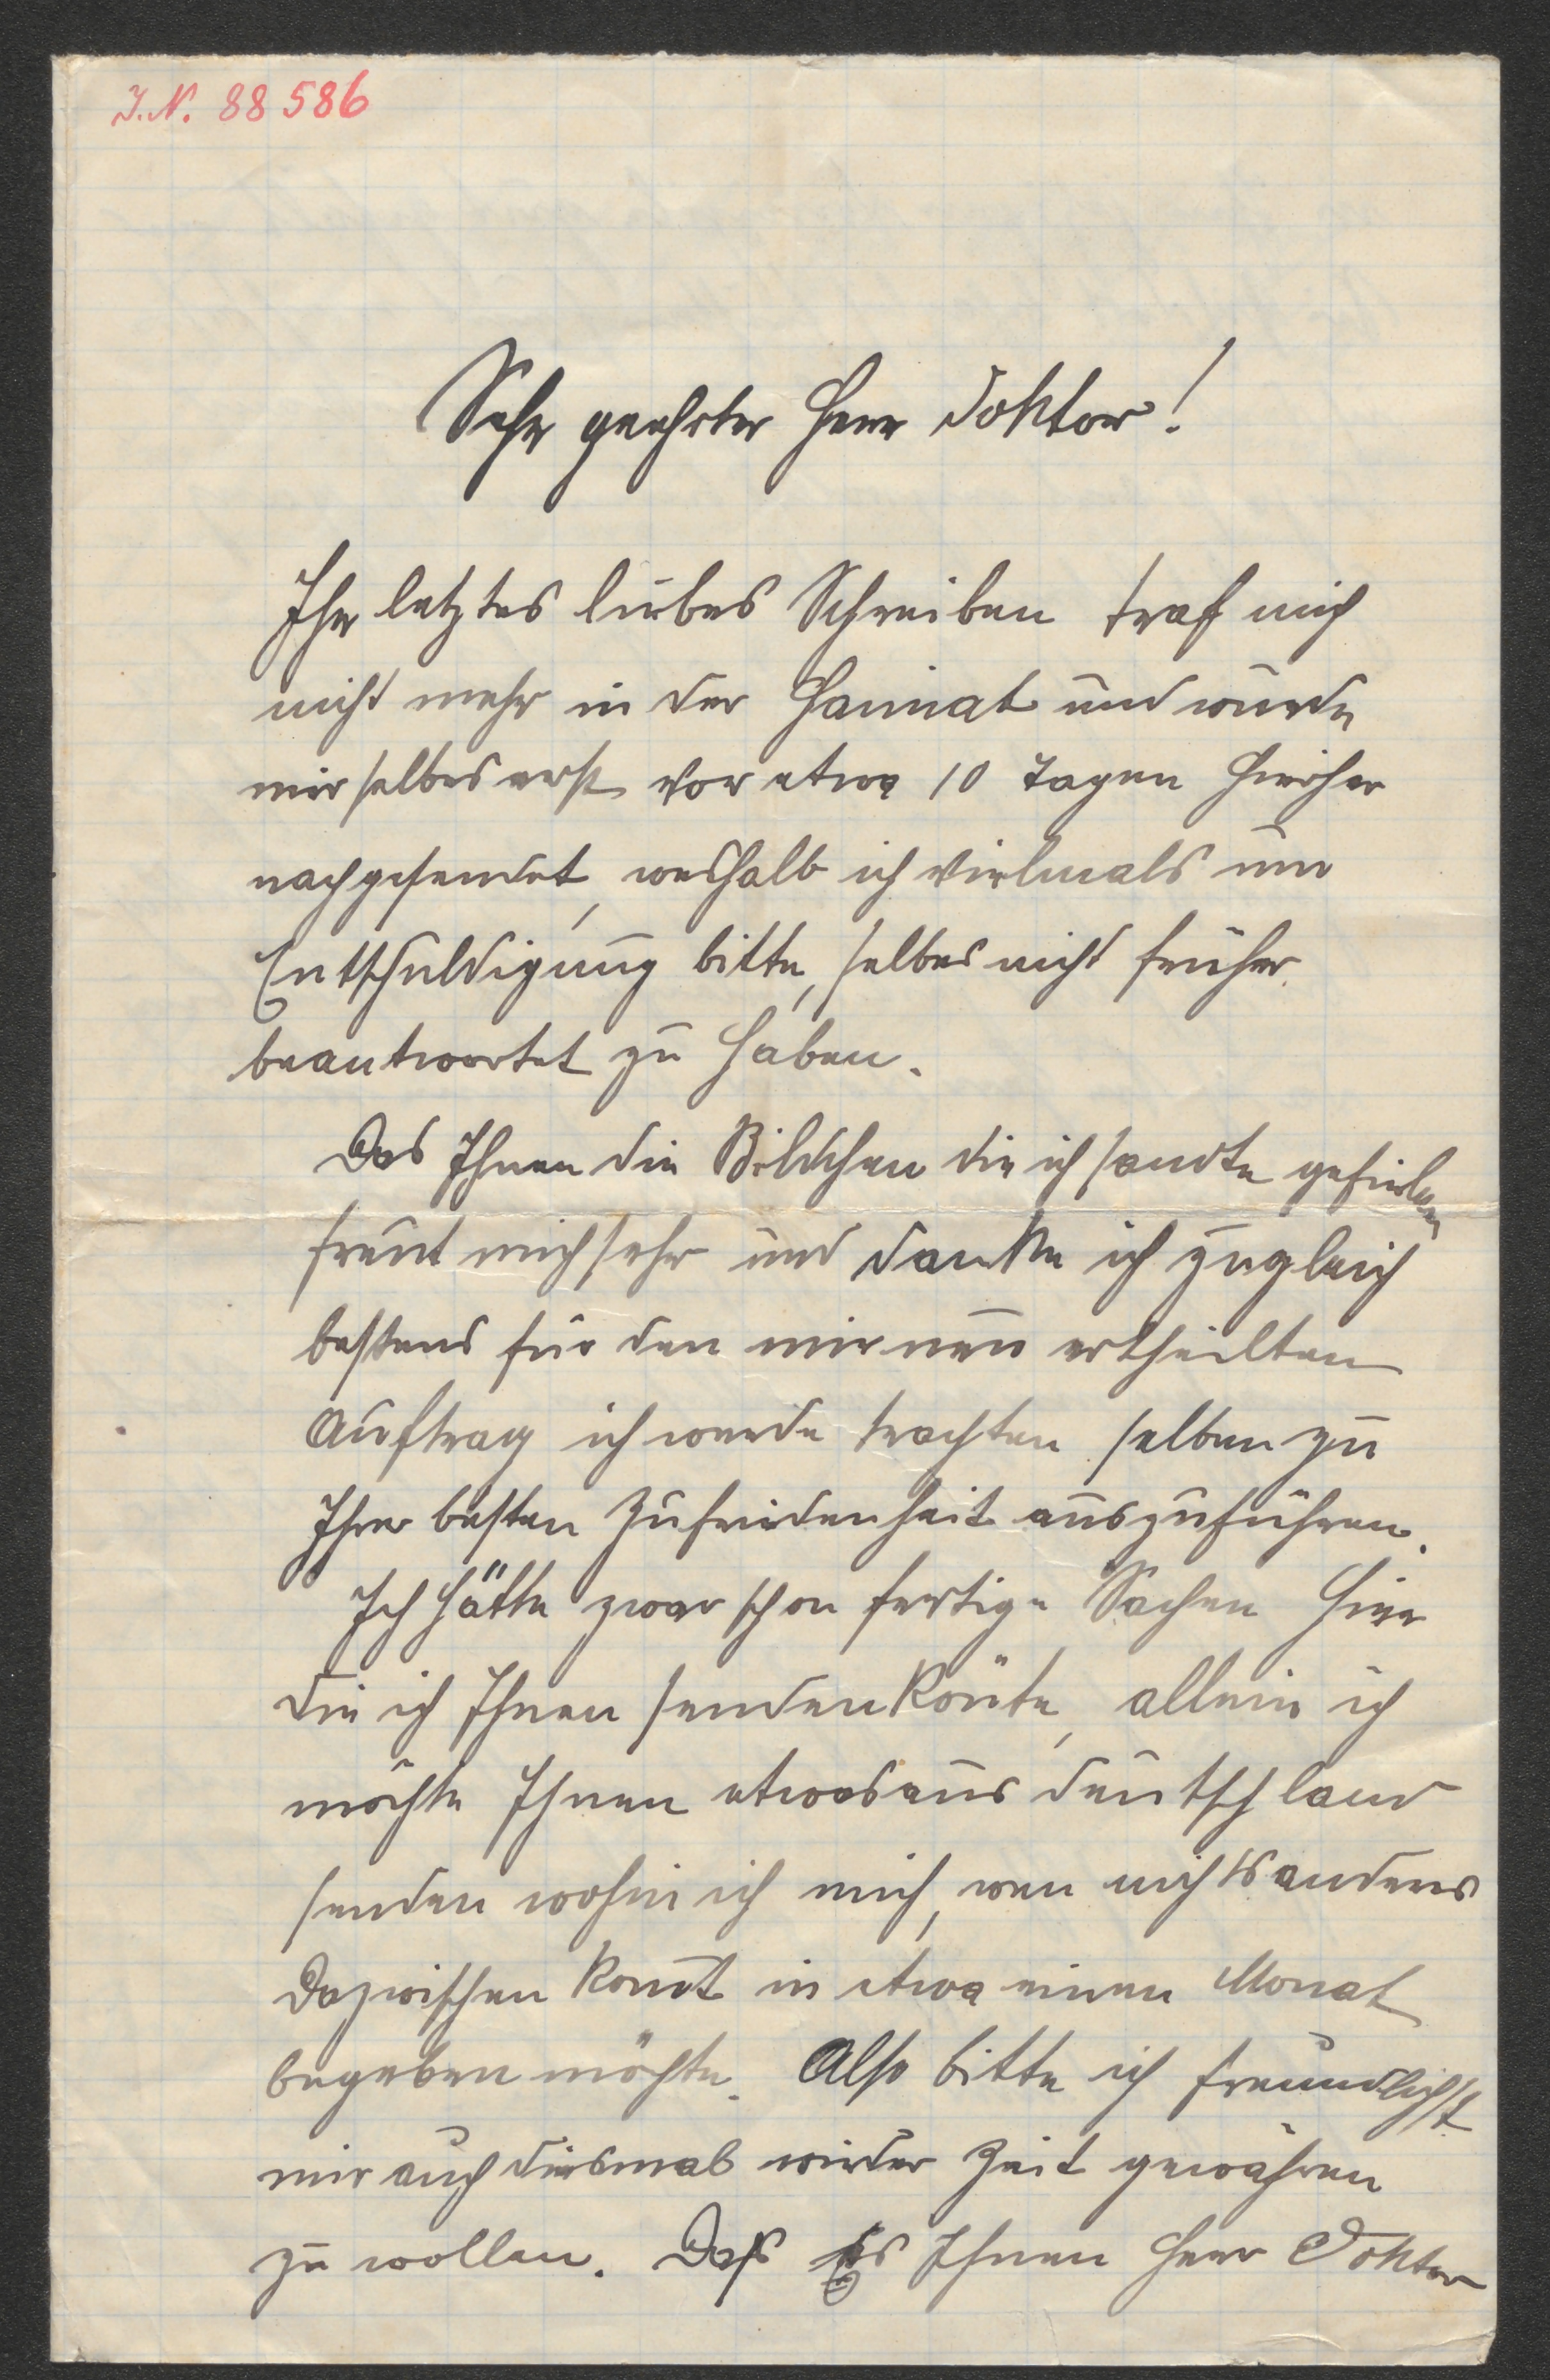 I.N. 88586
Sehr geehrter Herr Doktor!
Ihr letztes liebes Schreiben traf mich
nicht mehr in der Heimat und wurde
mir selbes erst vor etwa 10 Tagen hierher
nachgesendet, weshalb ich vielmals um
Entschuldigung bitte, selbes nicht früher
beantwortet zu haben.
Das Ihnen die Bildchen die ich sandte gefielen
freut mich sehr und danke ich zugleich
bestens für den mir neu ertheilten
Auftrag ich werde trachten selben zu
Ihrer besten Zufriedenheit auszuführen.
Ich hätte zwar schon fertige Sachen hier
die ich Ihnen senden kön̄te, allein ich
möchte Ihnen etwas aus Deutschland
senden wohin ich mich, wen nichts anderes
dazwischen kom̄t in etwa einen Monat
begeben möchte. Also bitte ich freundlichst
mir auch diesmal wieder Zeit gewähren
zu wollen. Daß Es Ihnen Herr Doktor